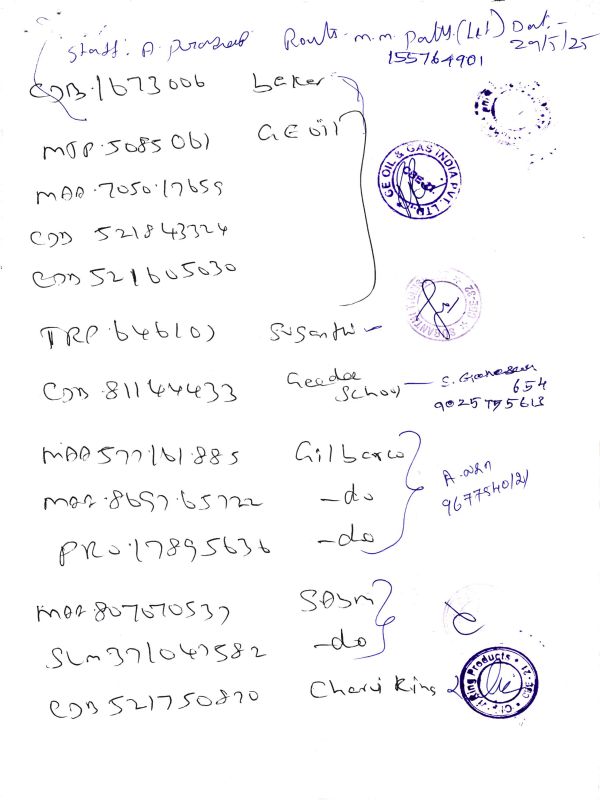 Staff: A. Prasad Route. m.m. patty. (Let) Dat.-
29/5/25
155764901
CDB.1673006 beker
MTP.5085061 GE oil
MAA.7050.17659
CDB 521843324
CDB 521605030
GE OIL & GAS INDIA PVT. LTD.
CBE-21
TRP.646107 Susanthi
CDB 81144433 Geedee School - S. Ganesan
654
MAA 577.161.885 Gilbarco
MAA.8697.65722 -do
PRO.17895636 -do
A.
MAA.807670537 SABM
SLM 371047582 -do
CDB 521750870 Charvi Rings
ing Products
CBE-21